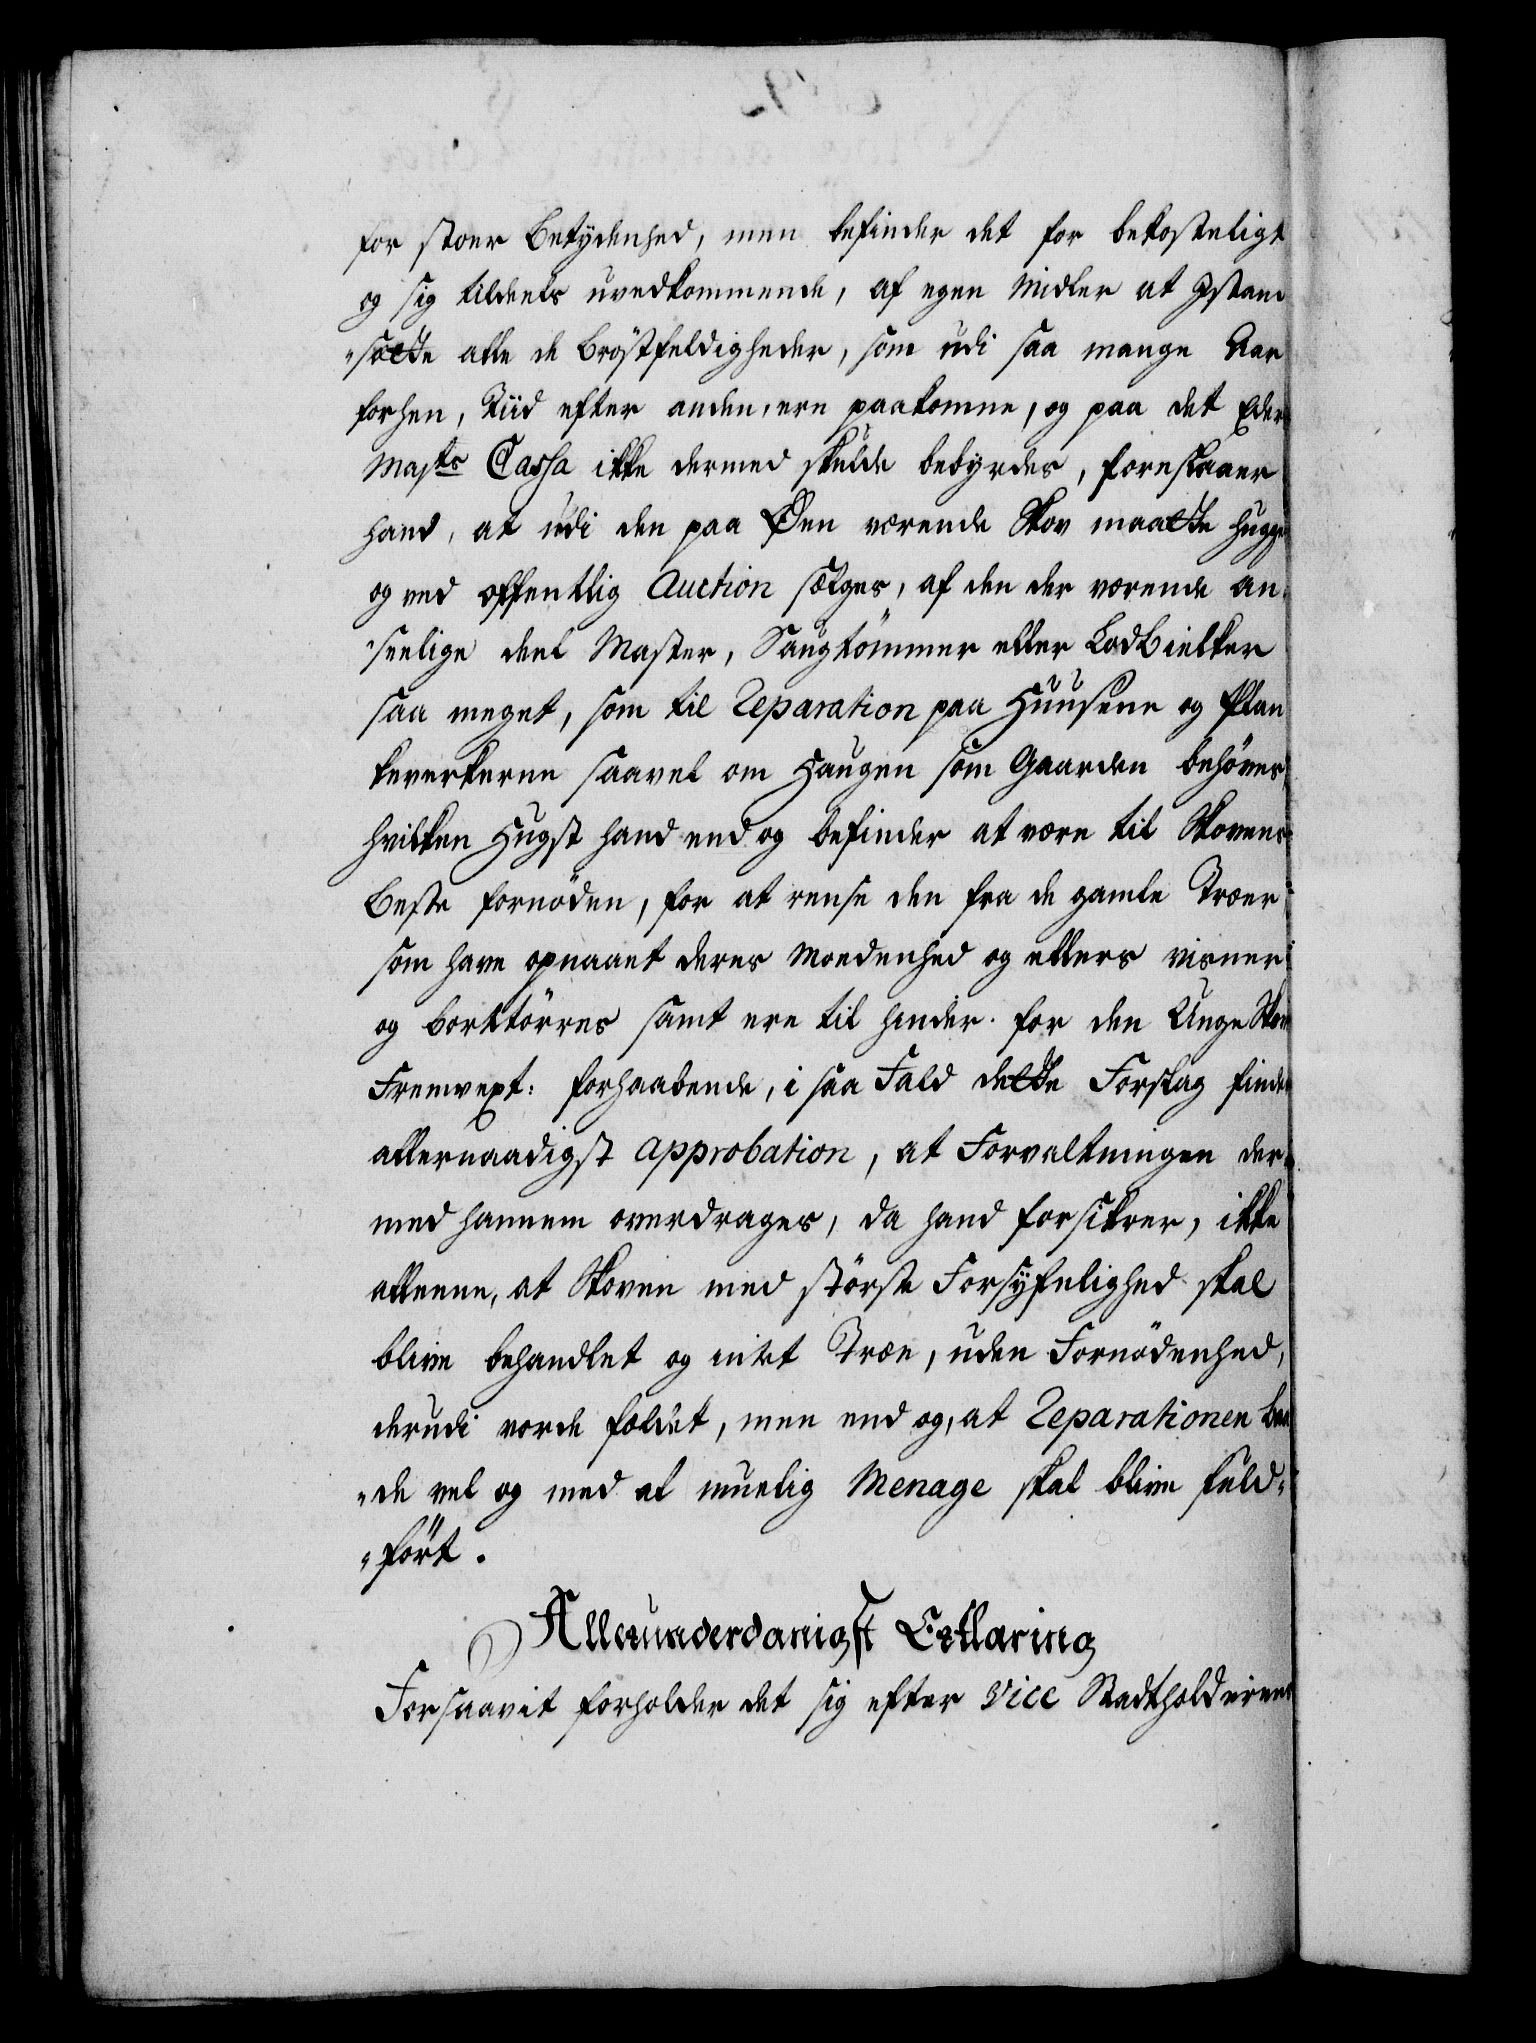 for stoer Betydenhed, men befinder det for bekosteligt
og sig tildeels uvedkommende, af egen Midler at Istand
"sætte alle de Bröstfeldigheder, som udi saa mange Aar
forhen, Tiid efter anden, ere paakomne, og paa det Eders
Majts Cassa ikke dermed skulde bebyrdes, foreslaaer
hand, at udi den paa Øen værende Skov maatte hugges
og ved offentlig Auction sælges, af den der værende an-
"seelige deel Master, Saugtömmer eller LadBielker
saa meget, som til Reparation paa Huusene og Plan
keverkerne saavel om Haugen som Gaarden behöves
hvilken Hugst hand end og befinder at være til Skovens
Beste fornöden, for at rense den fra de gamle Træer
som have opnaaet deres Moedenhed og ellers visner
og borttörres samt ere til hinder for den Unge Skov
Fremvext: forhaabende, i saa Fald dette Forslag finder
allernaadigst approbation, at Forvaltningen der-
med hannem overdrages, da hand forsikrer, ikke
alleene, at Skoven med störste Forsynlighed skal
blive behandlet og intet Træe, uden Fornödenhed,
derudi vorde fældet, men end og, at Reparationen baa
"de vel og med al muelig Menage skal blive fuld-
"fört.
Allerunderdanigst Erklæring
Forsaavit forholder det sig efter Vice Stadtholderens